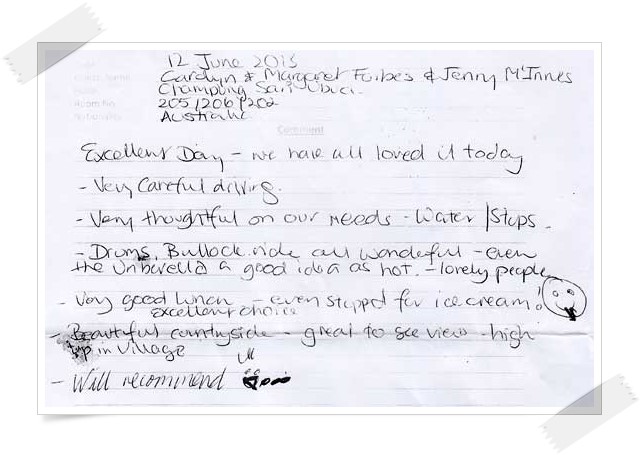 12 June 2013
Carolyn & Margaret Forbes & Jenny McInnes
Champlung Sari Ubud.
Room No 205/206/202
Australia
Comment
Excellent Day - we have all loved it today
- Very Careful driving.
- Very thoughtful on our needs - Water / Stops.
- Drums, Bullock ride all wonderful - even
the Unbrella a good idea as hot. - lovely people
- Very good lunch - even stopped for ice cream!
excellent choice
- Beautiful countryside - great to see view - high
up in village
- Will recommend